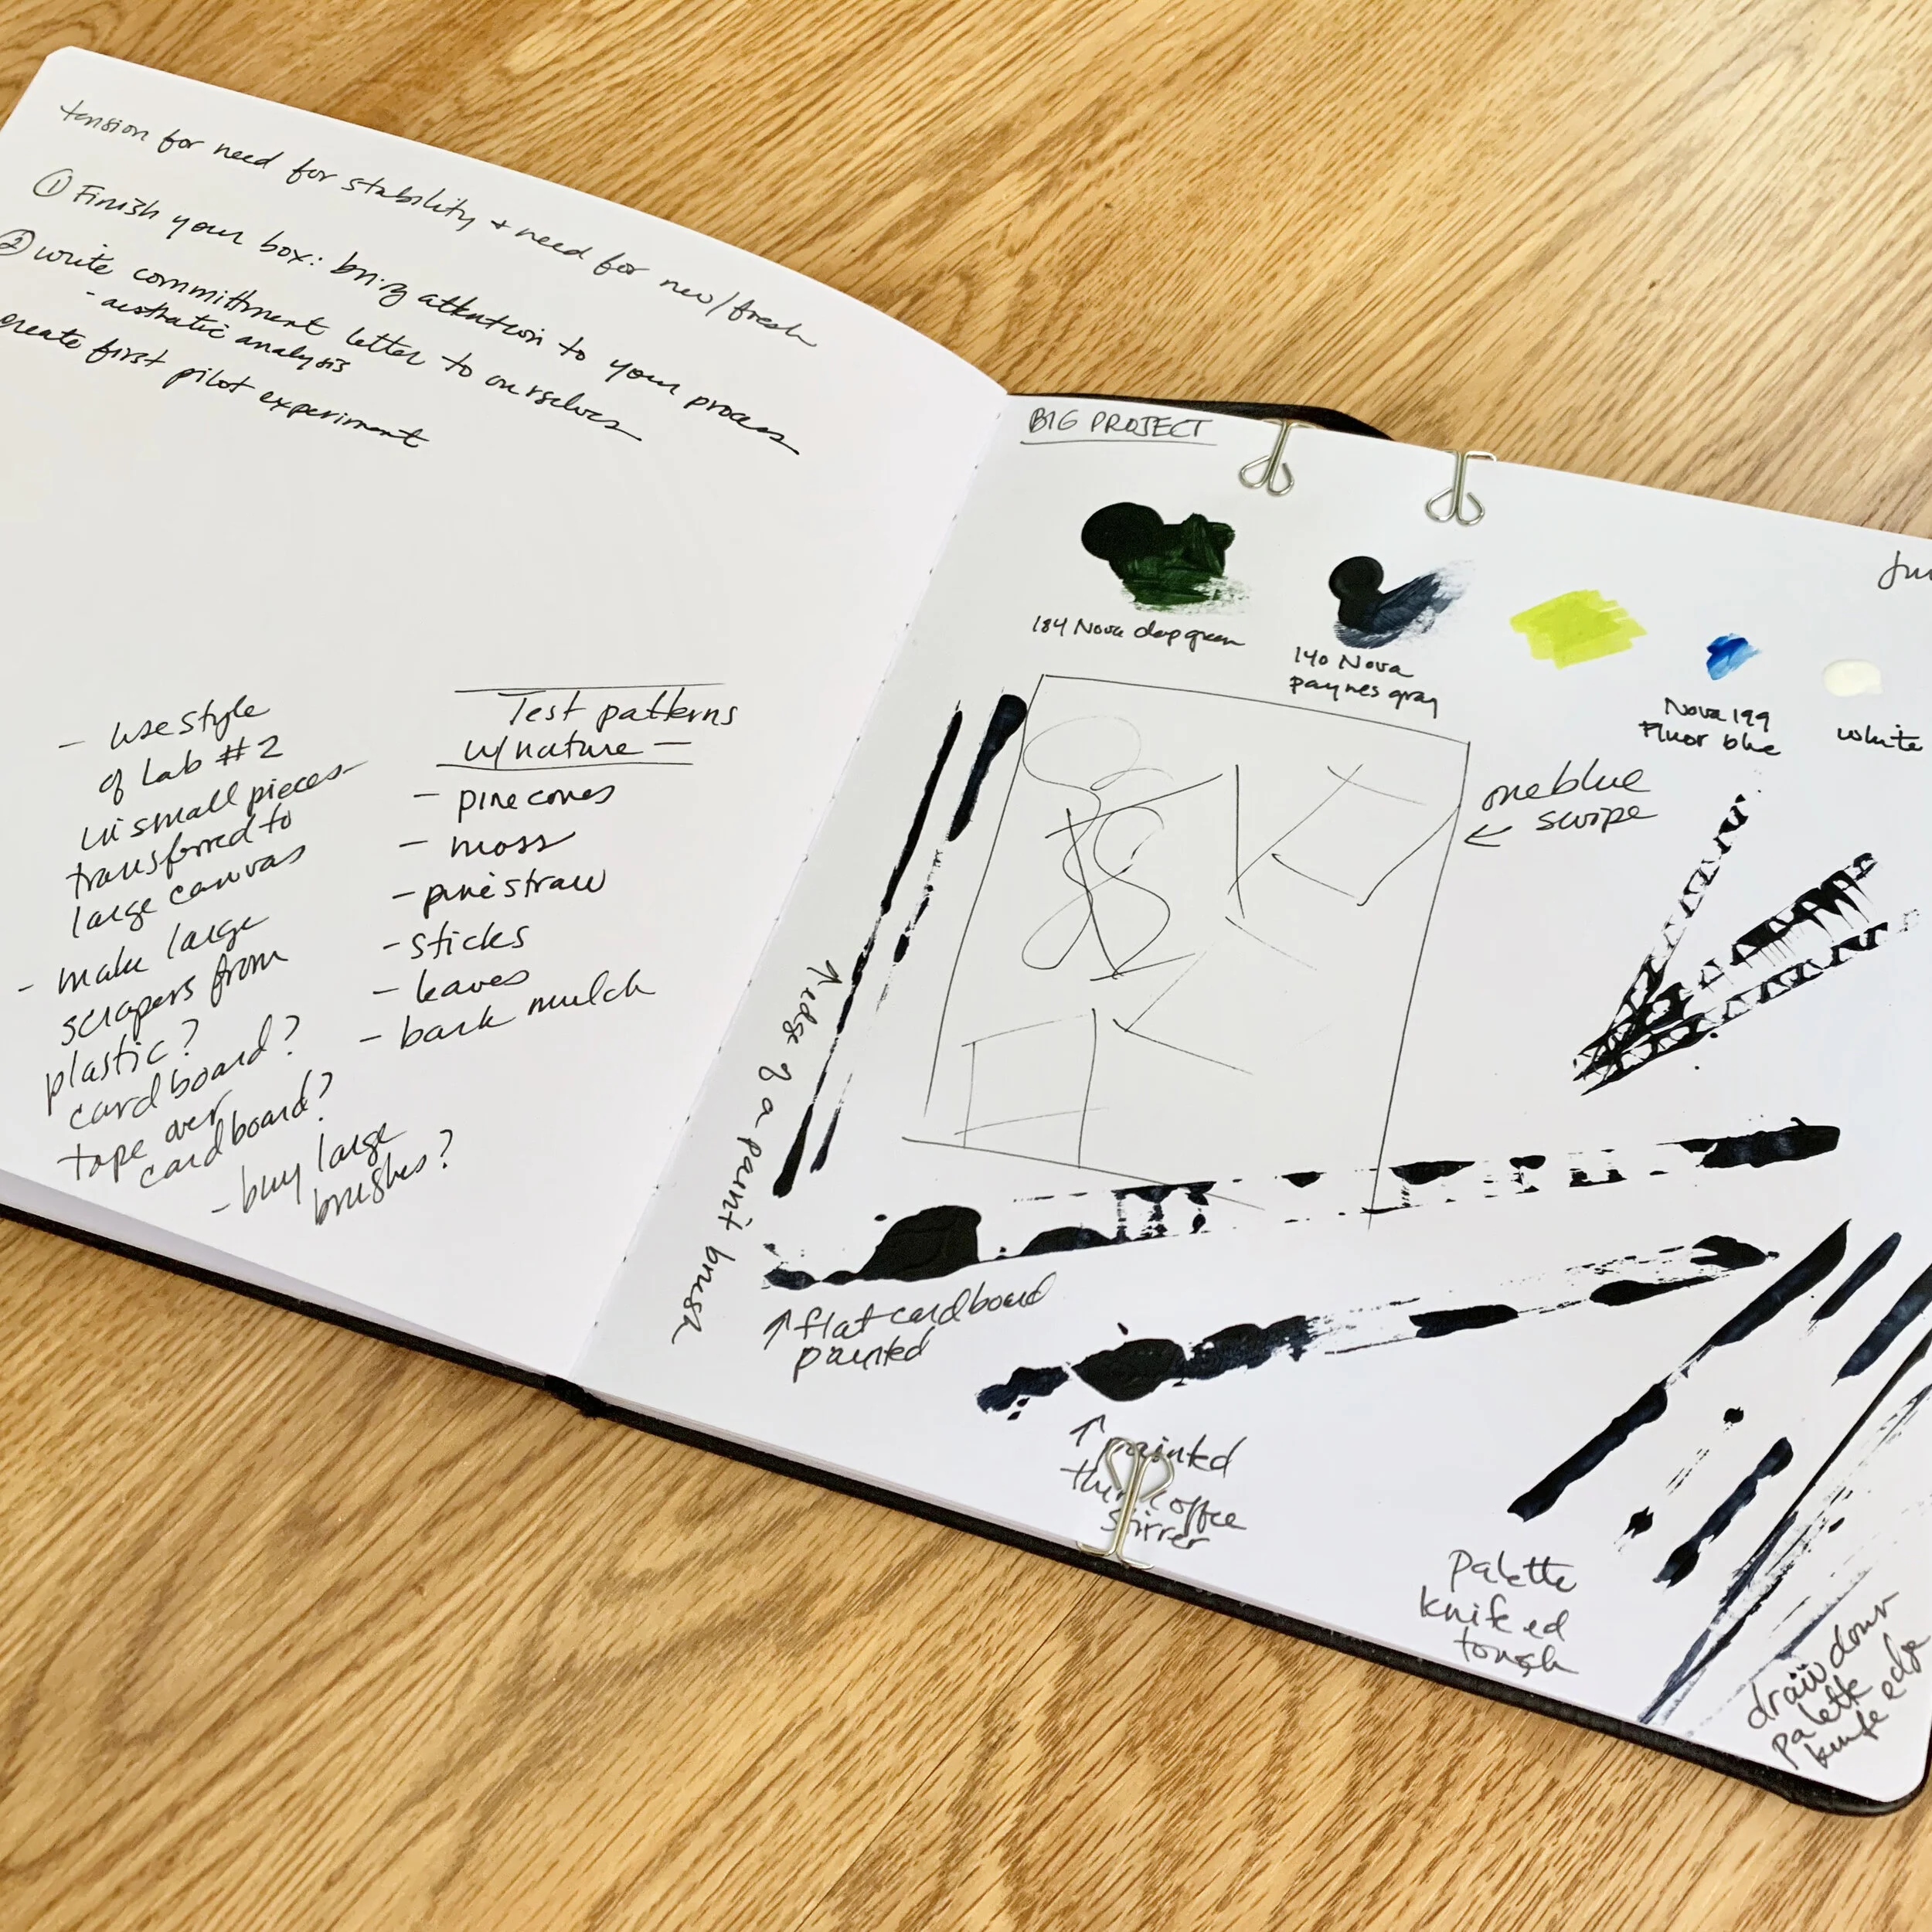 tension for need for stability + need for new/fresh
① Finish your box: bring attention to your process
② write committment letter to ourselves
- aesthetic analysis
create first pilot experiment
- use style
of Lab #2
in small pieces
transferred to
large canvas
- make large
scrapers from
plastic?
cardboard?
tape over
cardboard?
- buy large
brushes?
Test patterns
w/nature -
- pine cones
- moss
- pine straw
- sticks
- leaves
- bark mulch
BIG PROJECT
184 Nova deep green
140 Nova
paynes gray
Nova 199
Fluor blue
white
one blue
← swipe
↑ edge of a paint brush
↑ flat cardboard
painted
↑ painted
thin coffee
stirrer
palette
knifed
draw down
palette
knife edge